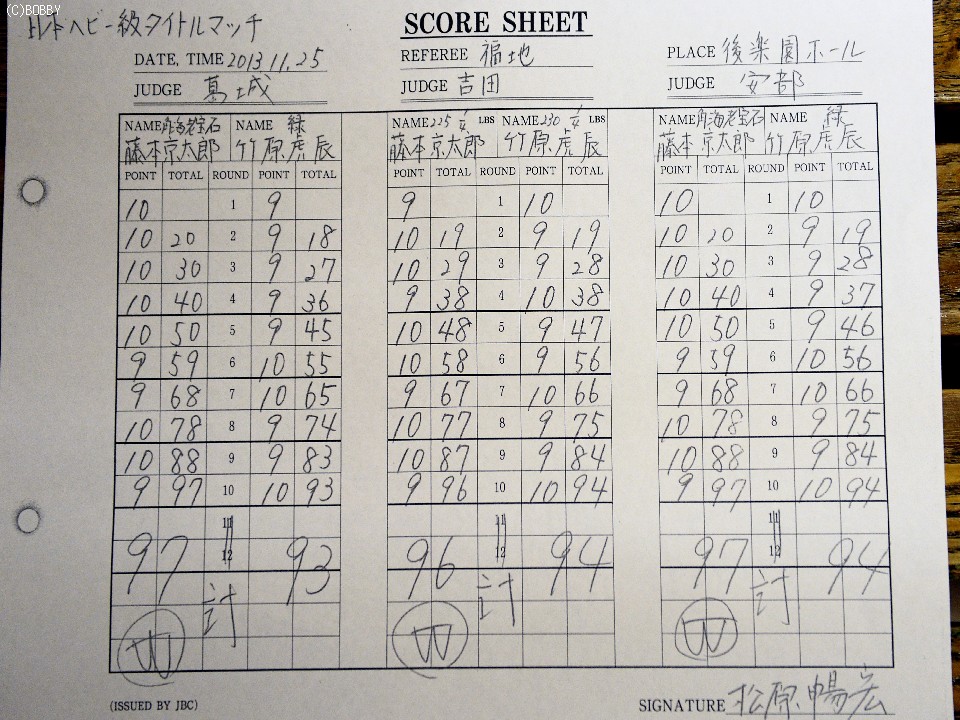 (C)BOBBY
ヘビー級タイトルマッチ
SCORE SHEET
DATE, TIME 2013 11.25
REFEREE 福地
PLACE 後楽園ホール
JUDGE 葛城
JUDGE 吉田
JUDGE 安部
NAME 角海老宝石 NAME 緑
NAME 225 LBS NAME 230 LBS
NAME 角海老宝石 NAME 緑
藤本京太郎 竹原虎辰
藤本京太郎 竹原虎辰
藤本京太郎 竹原虎辰
POINT TOTAL ROUND POINT TOTAL POINT TOTAL ROUND POINT TOTAL POINT TOTAL ROUND POINT TOTAL
10 1 9 9 1 10 10 1 10
10 20 2 9 18 10 19 2 9 19 10 20 2 9 19
10 30 3 9 27 10 29 3 9 28 10 30 3 9 28
10 40 4 9 36 9 38 4 10 38 10 40 4 9 37
10 50 5 9 45 10 48 5 9 47 10 50 5 9 46
9 59 6 10 55 10 58 6 9 56 9 59 6 10 56
9 68 7 10 65 9 67 7 10 66 9 68 7 10 66
10 78 8 9 74 10 77 8 9 75 10 78 8 9 75
10 88 9 9 83 10 87 9 9 84 10 88 9 9 84
9 97 10 10 93 9 96 10 10 94 9 97 10 10 94
11 11 11
97 12 93 96 12 94 97 12 94
計 計 計
W W W
(ISSUED BY JBC)
SIGNATURE 松原暢宏